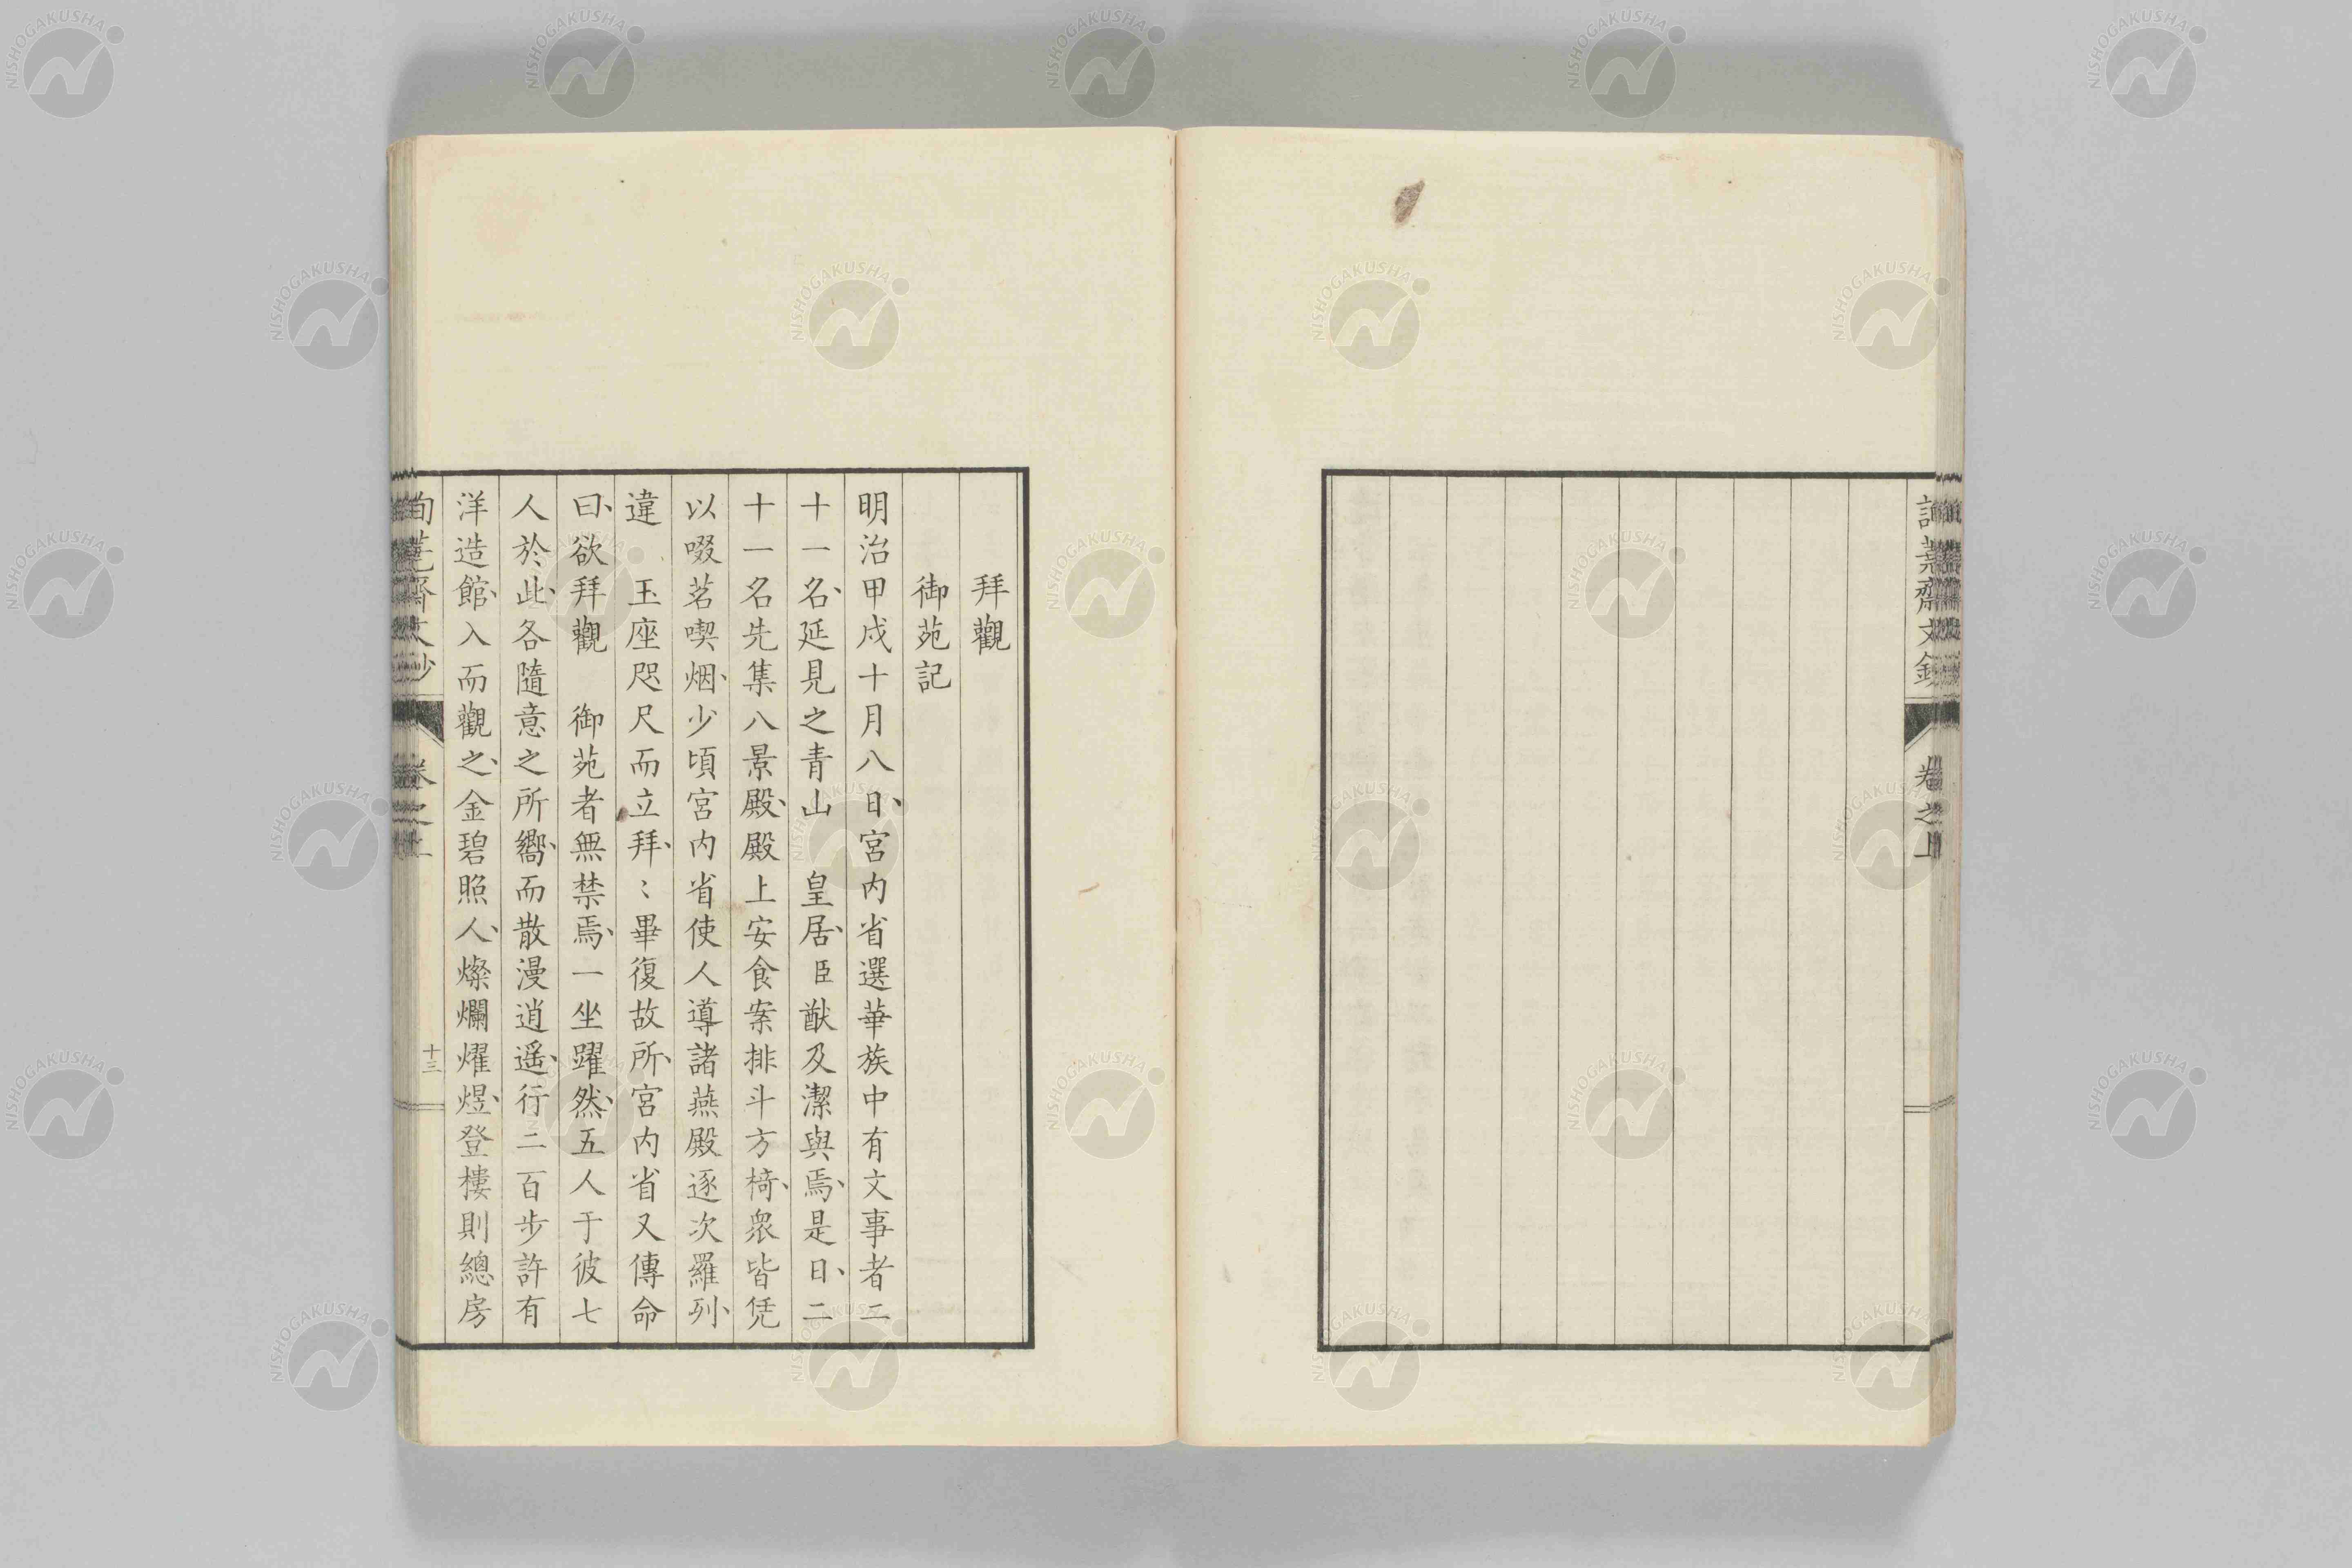 卷之上
拜觀
御苑記
明治甲戌十月八日、宮内省選華族中有文事者二
十一名、延見之青山　皇居、臣猷及潔與焉、是日、二
十一名先集八景殿、殿上安食案排斗方椅、衆皆凭
以啜茗喫烟、少頃宮内省使人導諸燕殿逐次羅列、
違　玉座咫尺而立拜、〻畢復故所、宮内省又傳命
曰、欲拜觀　御苑者無禁焉、一坐躍然、五人于彼七
人於此、各隨意之所嚮、而散漫逍遥、行二百步許有
洋造館、入而觀之、金碧照人、燦爛燿煜、登樓則總房
十三